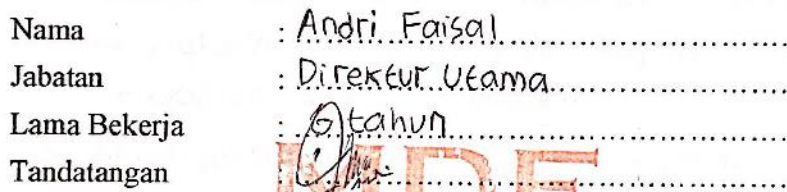 Nama : Andri Faisal
Jabatan : Direktur Utama
Lama Bekerja : 6 tahun
Tandatangan :